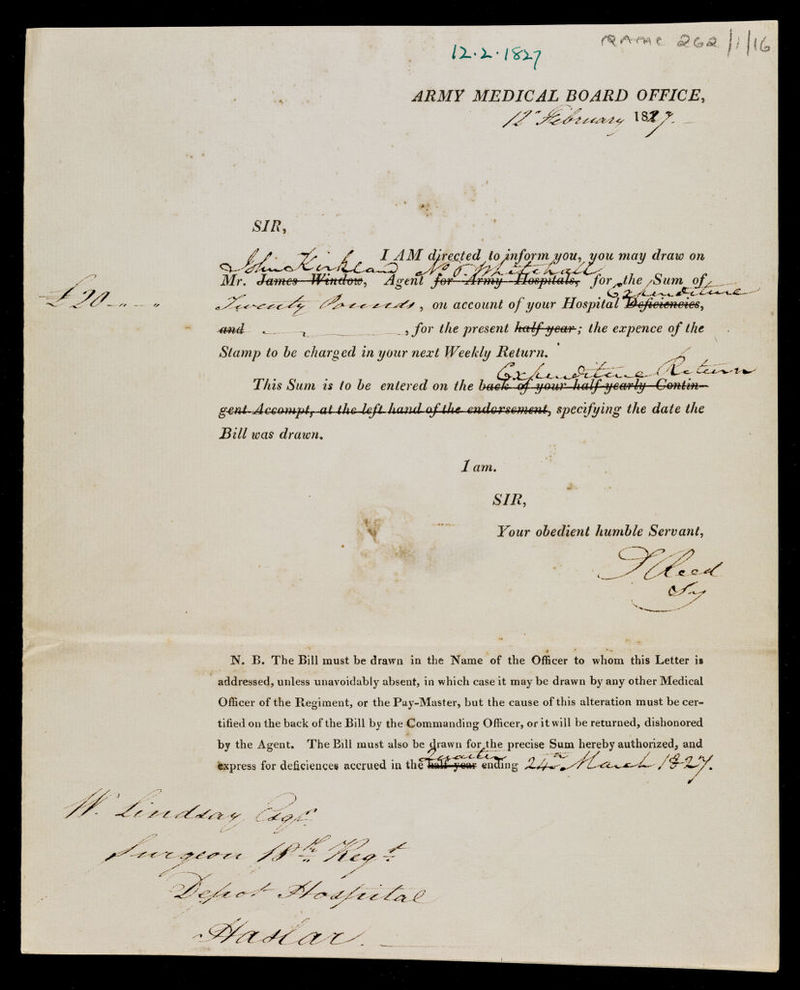 12.2.1827
RAMC 262/1/16
ARMY MEDICAL BOARD OFFICE,
12th February 1827.
SIR,
I AM directed to inform you, you may draw on
John Kirkland No 8. Whitehall
Mr. James Window, Agent for Army Hospitals, for the Sum of
Expenditure
£20 - " - " Twenty Pounds, on account of your Hospital Deficiencies,
and , for the present half year; the expence of the
Stamp to be charged in your next Weekly Return.
Expenditure Return
This Sum is to be entered on the back of your half yearly Contin-
gent Accompt, at the left hand of the endorsement, specifying the date the
Bill was drawn.
I am.
SIR,
Your obedient humble Servant,
Reed
Sy
N. B. The Bill must be drawn in the Name of the Officer to whom this Letter is
addressed, unless unavoidably absent, in which case it may be drawn by any other Medical
Officer of the Regiment, or the Pay-Master, but the cause of this alteration must be cer-
tified on the back of the Bill by the Commanding Officer, or it will be returned, dishonored
by the Agent. The Bill must also be drawn for the precise Sum hereby authorized, and
Quarter
express for deficiences accrued in the half year ending 24th March 1827.
W. Lindsay Esqr.
Surgeon 18th Regt
Depot Hospital
Haslar.